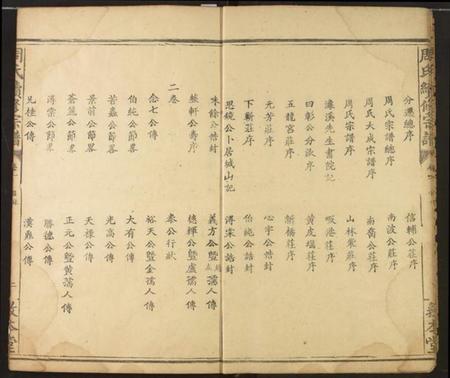 周氏續修宗譜
分遷總序
信輔公莊序
周氏宗譜總序
南波公莊序
周氏大成宗譜序
南嶺公莊序
周氏宗譜序
山林裳莊序
濂溪先生書院記
嘅港莊序
曰彰公分派序
黃皮塅莊序
五龍宮莊序
新橋莊序
元芳莊序
心宇公誥封
下新莊序
伯純公誥封
思鏡公卜居城山記
得宋公誥封
味餘公誥封
義方公暨趙孺人傳
蓛軒公壽序
德輝公暨盧孺人傳
二卷
泰公行狀
念七公傳
裕天公暨金孺人傳
伯純公節畧
大有公傳
若蟲公節畧
光高公傳
景前公節畧
天祿公傳
蒼筤公節畧
正元公暨黃孺人傳
得宗公傳
勝德公傳
兄佳公傳
漢堯公傳
周氏續修宗譜
卷一
敦本堂